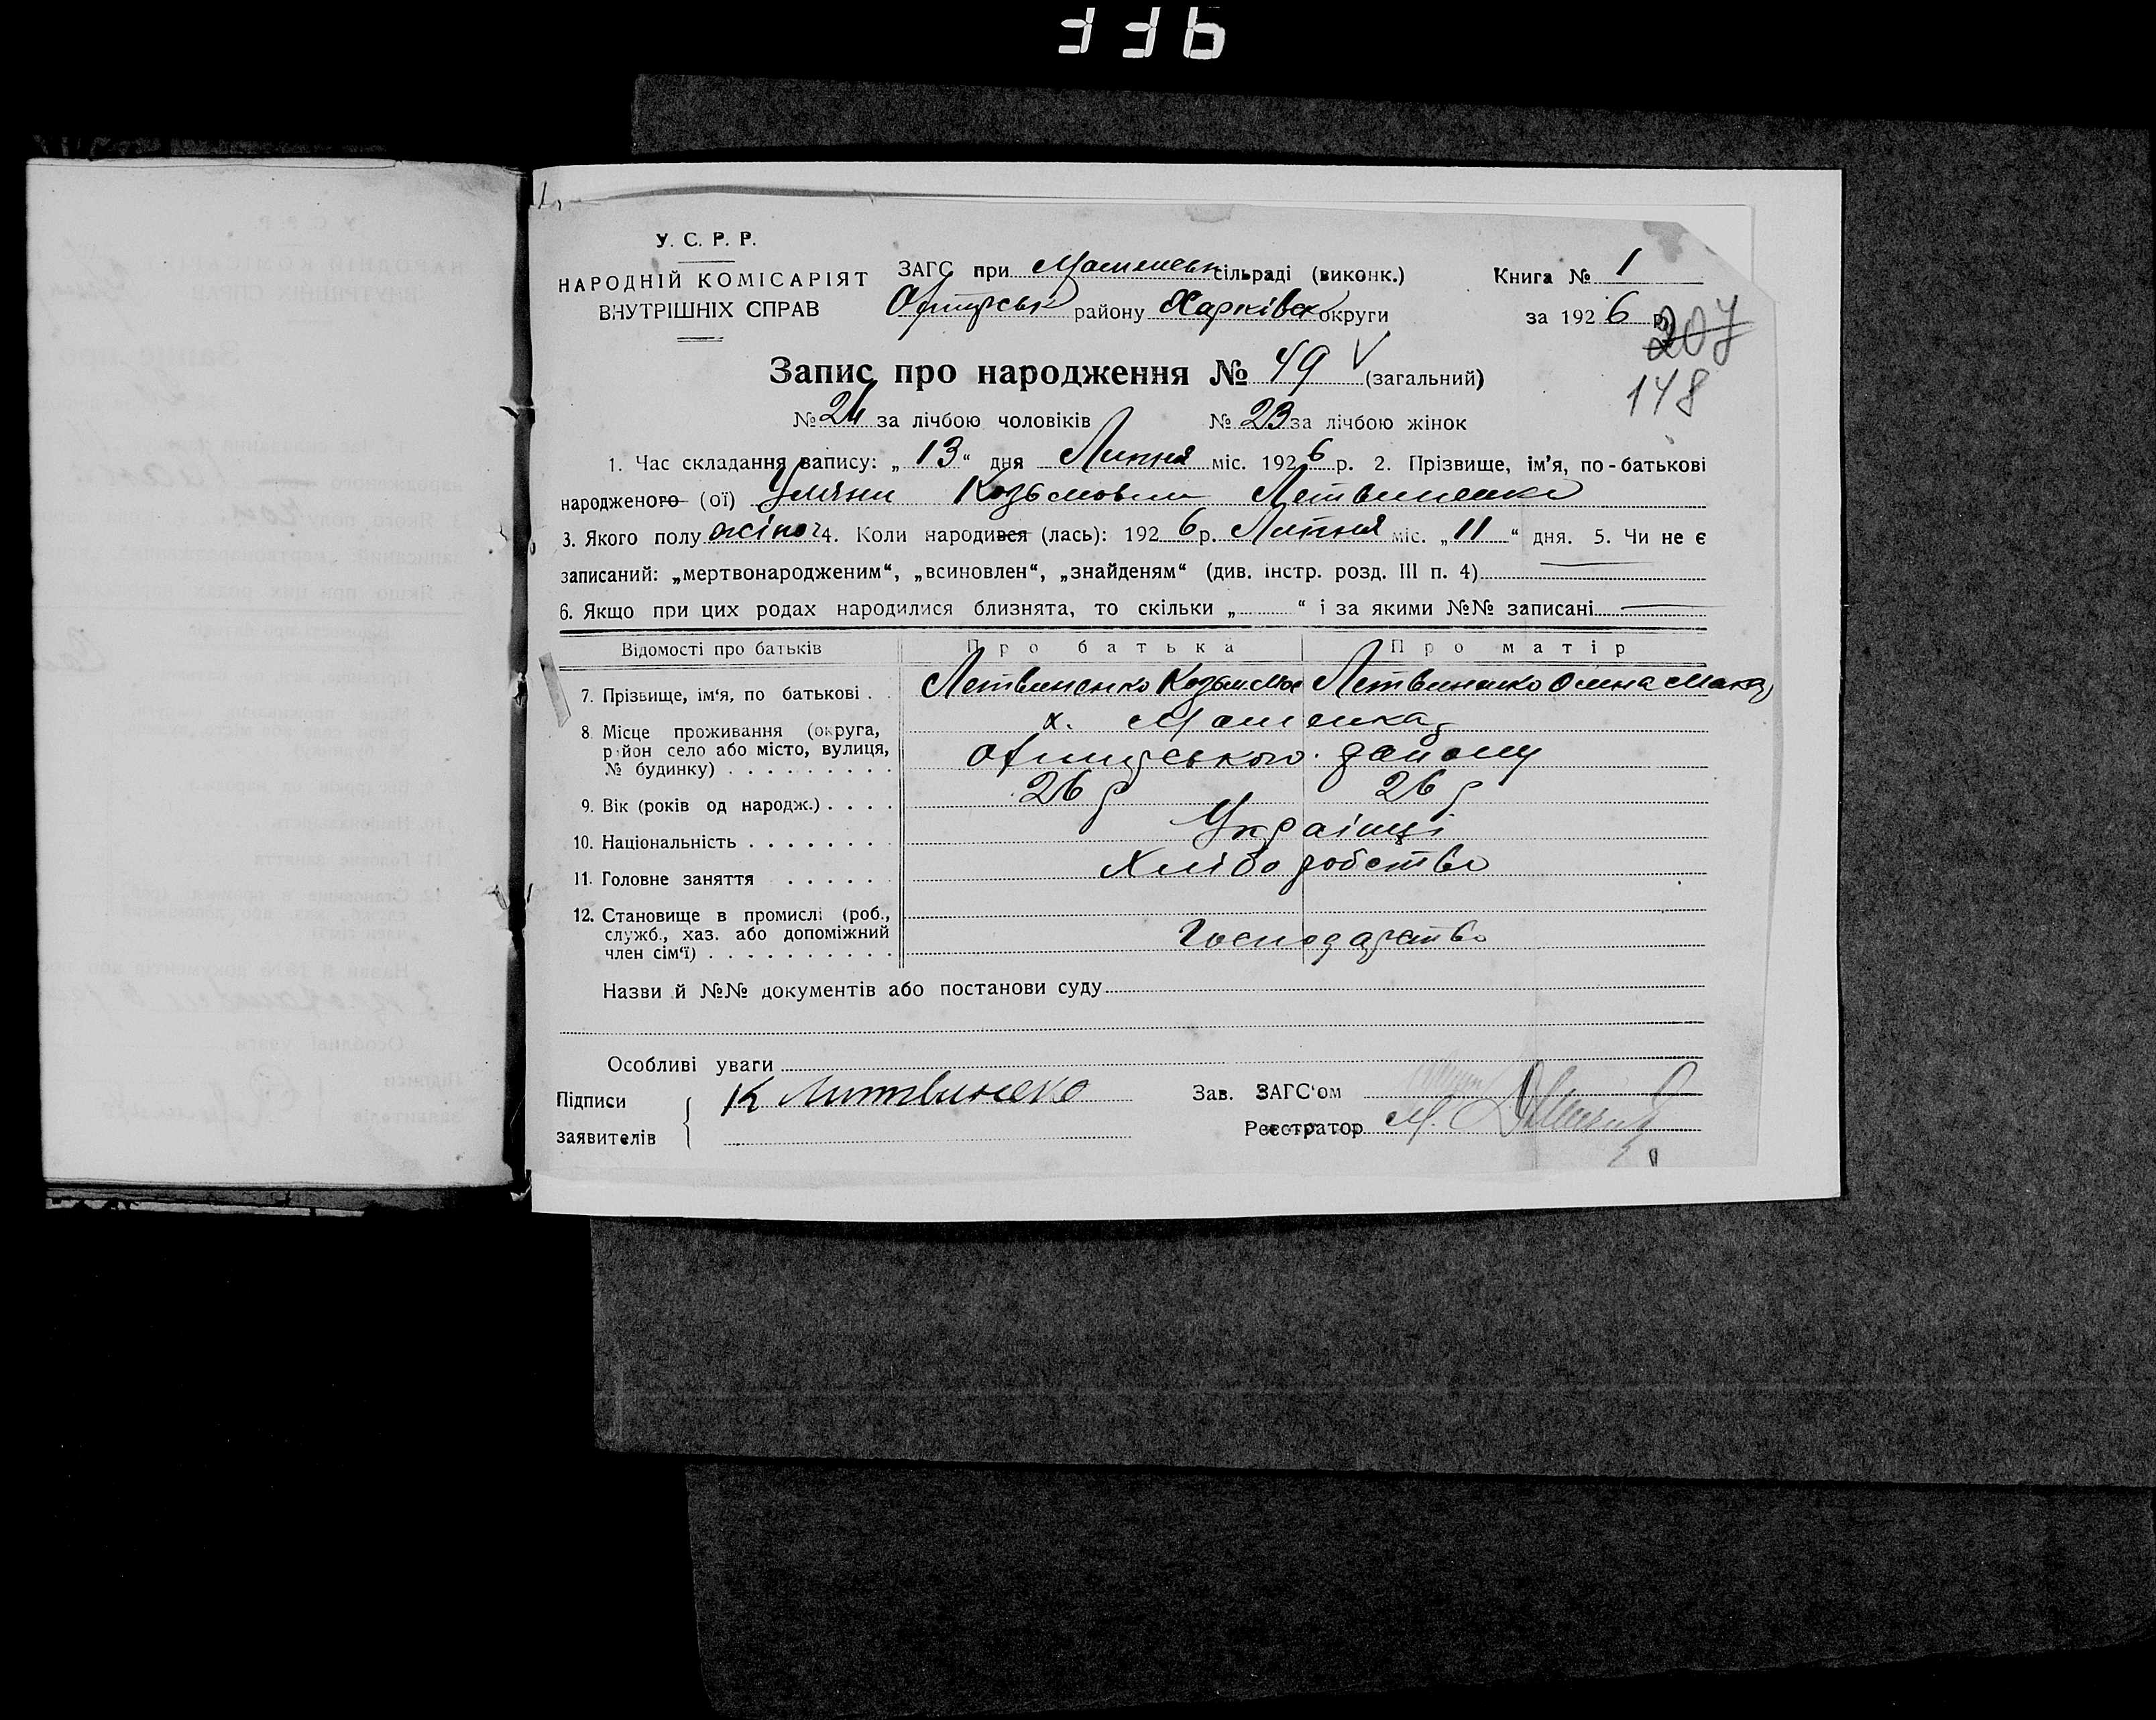 336
У. С. Р. Р.
НАРОДНІЙ КОМІСАРІЯТ
ВНУТРІШНІХ СПРАВ
ЗАГС при сільраді (виконк.)
району Харківськ округи
Книга № 1
за 1926 р.
207
148
Запис про народження № 49 (загальний)
№ 24 за лічбою чоловіків № 23 за лічбою жінок
1. Час складання запису: „ 13 “ дня Липня міс. 1926 р. 2. Прізвище, ім’я, по-батькові
народженого (ої) Уляни Козьмовни Летвиненко
3. Якого полу жіноч 4. Коли народився (лась): 1926 р. Липня міс. „ 11 “ дня. 5. Чи не є
записаний: „мертвонародженим“, „всиновлен“, „знайденям“ (див. інстр. розд. III п. 4)
6. Якщо при цих родах народилися близнята, то скільки „ “ і за якими №№ записані
Відомості про батьків Про батька Про матір
7. Прізвище, ім‘я, по батькові . . Летвиненко Козьма Летвиненко Олена Мака
8. Місце проживання (округа, х.
район село або місто, вулиця, району
№ будинку) . . . . . . . . .
9. Вік (років од народж.) . . . . 26 р 26 р
10. Національність . . . . . . . . Українці
11. Головне заняття . . . . . . Хліборобство
12. Становище в промислі (роб.,
служб., хаз. або допоміжний Господарство
член сім‘ї) . . . . . . . . . .
Назви й №№ документів або постанови суду
Особливі уваги
Підписи К Литвиненко Зав. ЗАГС‘ом
заявителів Реєстратор М.